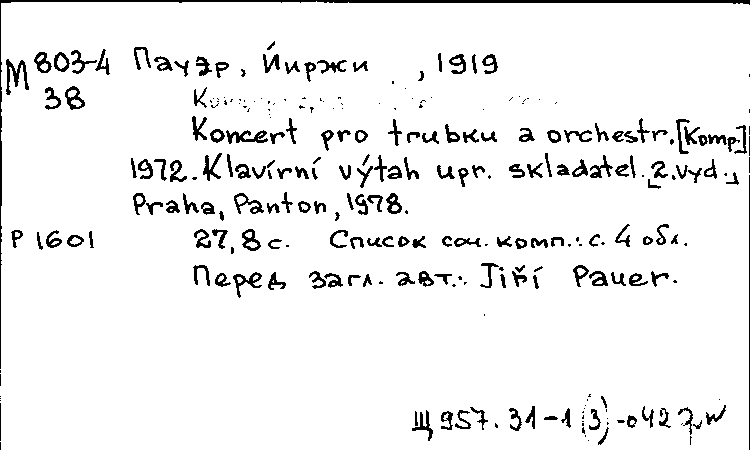 М 803-4 Пауэр, Йиржи , 1919
38
Koncert pro trubku a orchestr. [Komp.]
1972. Klavírní výtah upr. skladatel. [2. vyd.]
Praha, Panton, 1978.
Р 1601 27, 8 с. Список соч. комп.: с. 4 обл.
Перед загл. авт.: Jiří Pauer.
Щ 957.31-1(3)-042